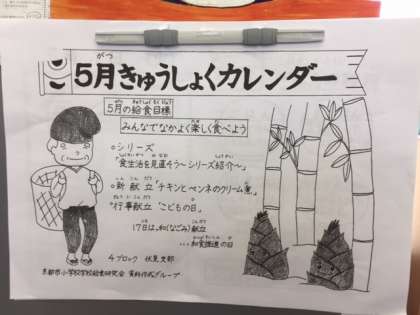 がつ
5月きゅうしょくカレンダー
5月の給食目標
みんなでなかよく楽しく食べよう
○シリーズ
「食生活を見直そう〜シリーズ紹介〜」
○新献立「チキンとペンネのクリーム煮」
○行事献立「こどもの日」
17日は、和(なごみ)献立
...和食推進の日
4ブロック 伏見支部
京都市小学校学校給食研究会 資料作成グループ